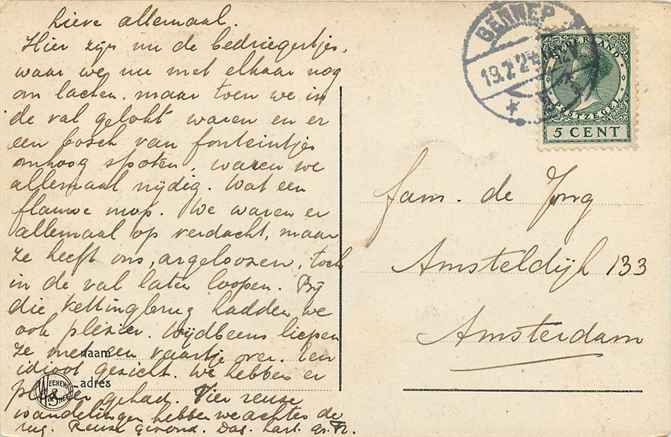 Lieve allemaal.
Hier zijn nu de bedriegertjes,
waar we nu met elkaar nog
om lachen. maar toen we in
de val gelokt waren en er
een bosch van fonteintjes
omhoog spoten, waren we
allemaal nijdig. Wat een
flauwe mop. We waren er
allemaal op verdacht, maar
ze heeft ons, argeloozen, toch
in de val laten loopen. Bij
die Kettingbrug hadden we
ook plezier. Wijdbeens liepen
ze met een vaartje over. Een
idioot gezicht. We hebben er
plezier gehad. Vier reuze
wandelingen hebben we achter de
rug. Reuze gezond. Dag. hart. gr.
naam
adres
BENNEK
5 CENT
Fam. de Jong
Amsteldijk 133
Amsterdam